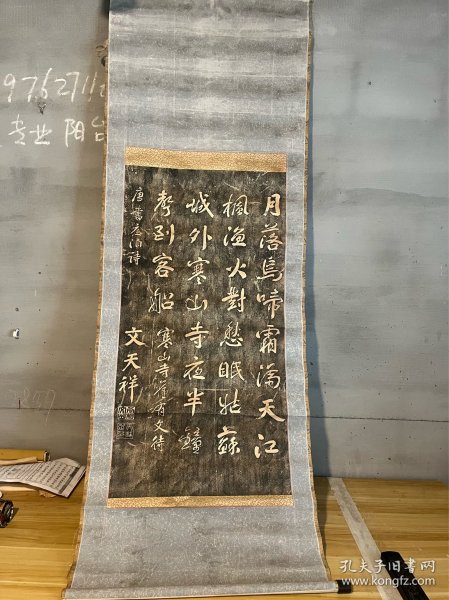 月落烏啼霜滿天江
楓漁火對愁眠姑蘇
城外寒山寺夜半鐘
聲到客船 寒山寺舊有文待
文天祥
976271
专业 阳台
孔夫子旧书网
www.kongfz.com